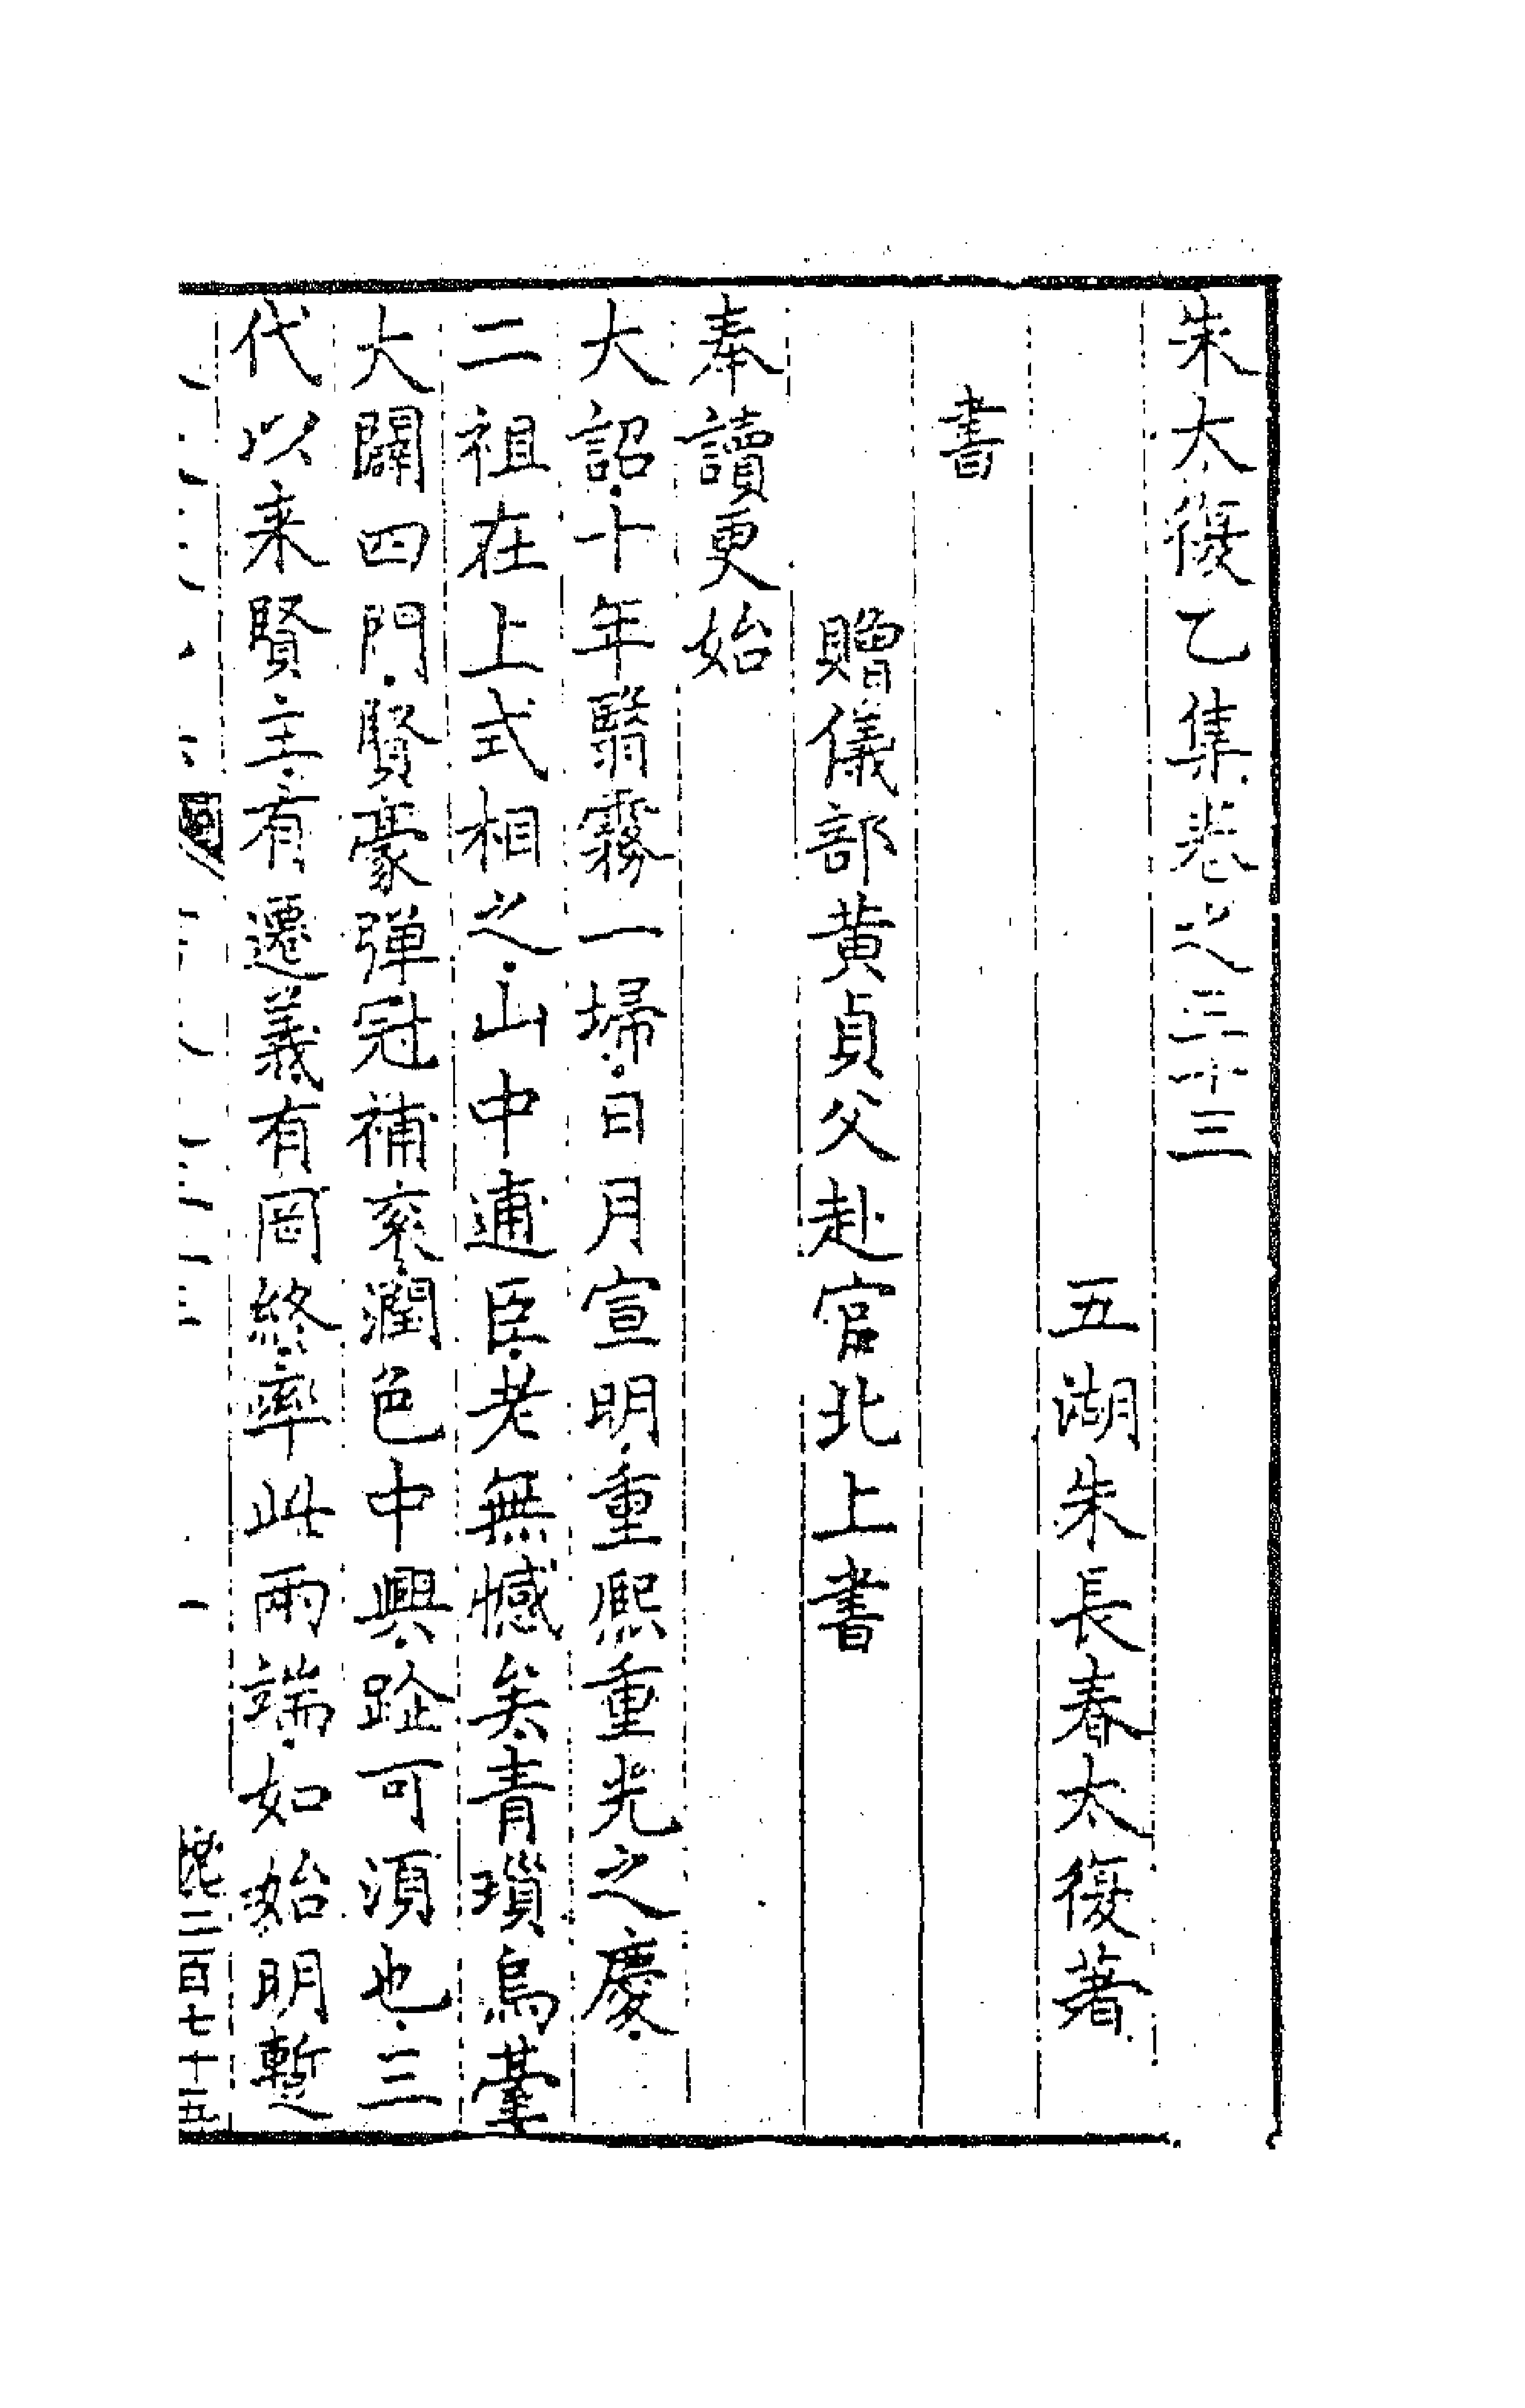 朱太復乙集卷之三十三
五湖朱長春太復著
書
贈儀部黃貞父赴官北上書
奉讀更始
大詔十年翳霧一掃日月宣明重熙重光之慶
二祖在上式相之山中逋臣老無憾矣青瑣烏臺
大闢四門賢豪彈冠補袞潤色中興跂可須也三
代以来賢主有遷義有罔終率此兩端如始明蹔
二百七十五